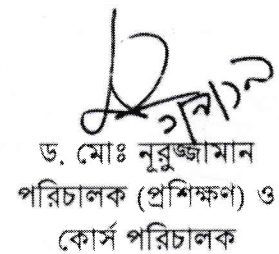 ড. মোঃ নূরুজ্জামান
পরিচালক (প্রশিক্ষণ) ও
কোর্স পরিচালক